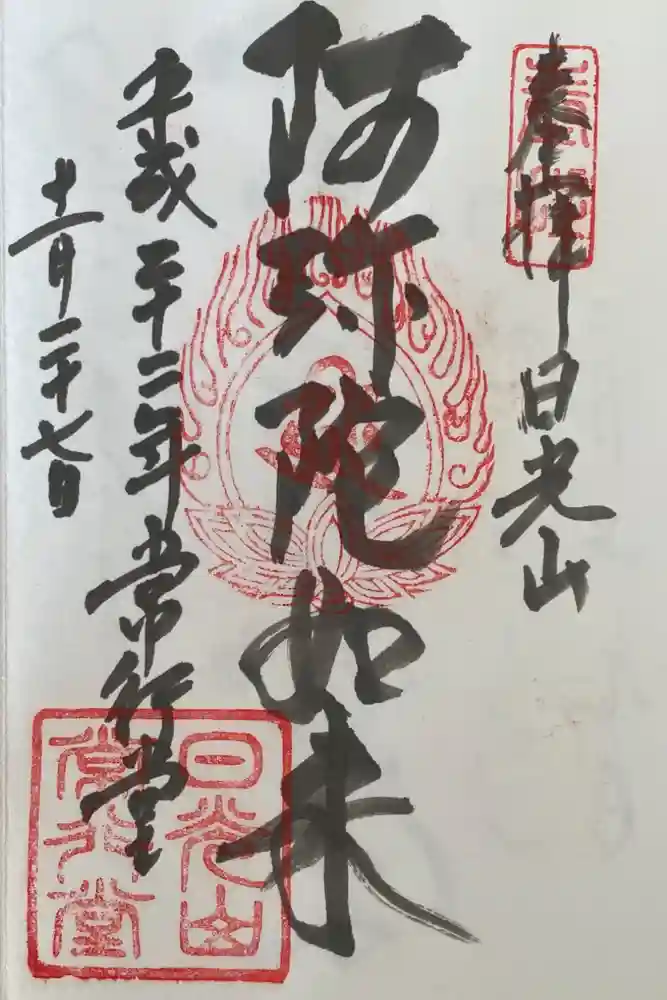 奉拝 日光山
奉拝
阿弥陀如来
平成二十二年 常行堂
十一月二十七日
日光山
常行堂